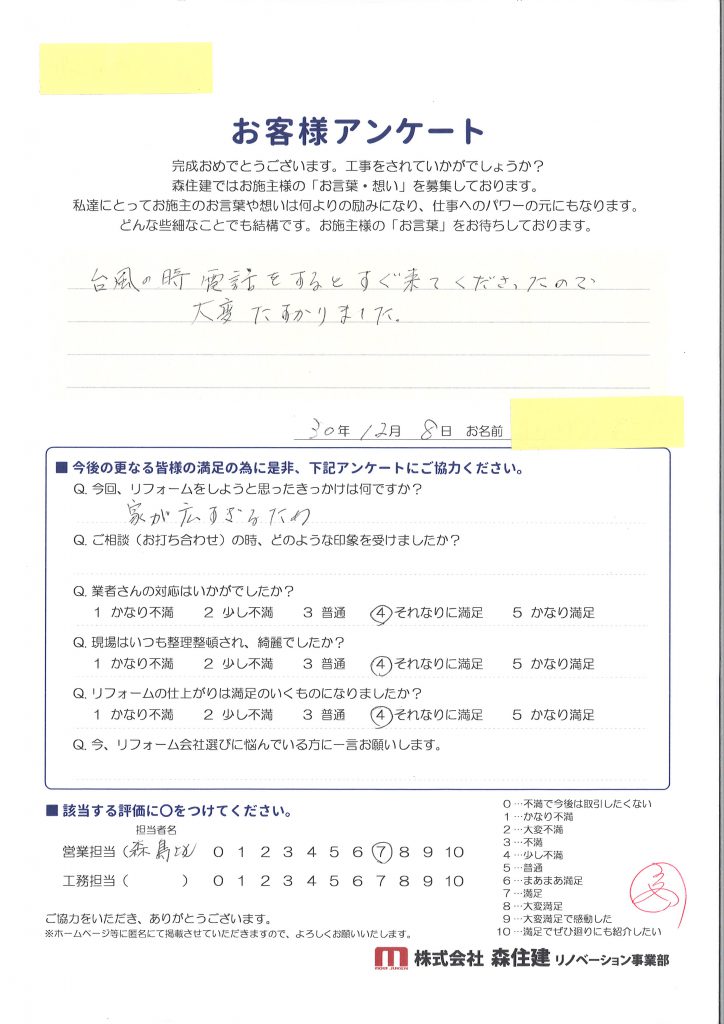 お客様アンケート
完成おめでとうございます。工事をされていかがでしょうか？
森住建ではお施主様の「お言葉・想い」を募集しております。
私達にとってお施主のお言葉や想いは何よりの励みになり、仕事へのパワーの元にもなります。
どんな些細なことでも結構です。お施主様の「お言葉」をお待ちしております。
台風の時 電話をするとすぐ来てくださったので
大変たすかりました。
30年 12月 8日 お名前
■ 今後の更なる皆様の満足の為に是非、下記アンケートにご協力ください。
Q. 今回、リフォームをしようと思ったきっかけは何ですか？
家が広すぎるため
Q. ご相談（お打ち合わせ）の時、どのような印象を受けましたか？
Q. 業者さんの対応はいかがでしたか？
1 かなり不満 2 少し不満 3 普通 4 それなりに満足 5 かなり満足
Q. 現場はいつも整理整頓され、綺麗でしたか？
1 かなり不満 2 少し不満 3 普通 4 それなりに満足 5 かなり満足
Q. リフォームの仕上がりは満足のいくものになりましたか？
1 かなり不満 2 少し不満 3 普通 4 それなりに満足 5 かなり満足
Q. 今、リフォーム会社選びに悩んでいる方に一言お願いします。
■ 該当する評価に〇をつけてください。
担当者名
営業担当（森島 ） 0 1 2 3 4 5 6 7 8 9 10
工務担当（ ） 0 1 2 3 4 5 6 7 8 9 10
0…不満で今後は取引したくない
1…かなり不満
2…大変不満
3…不満
4…少し不満
5…普通
6…まあまあ満足
7…満足
8…大変満足
9…大変満足で感動した
10…満足でぜひ廻りにも紹介したい
ご協力をいただき、ありがとうございます。
※ホームページ等に匿名にて掲載させていただきますので、よろしくお願いいたします。
株式会社 森住建 リノベーション事業部